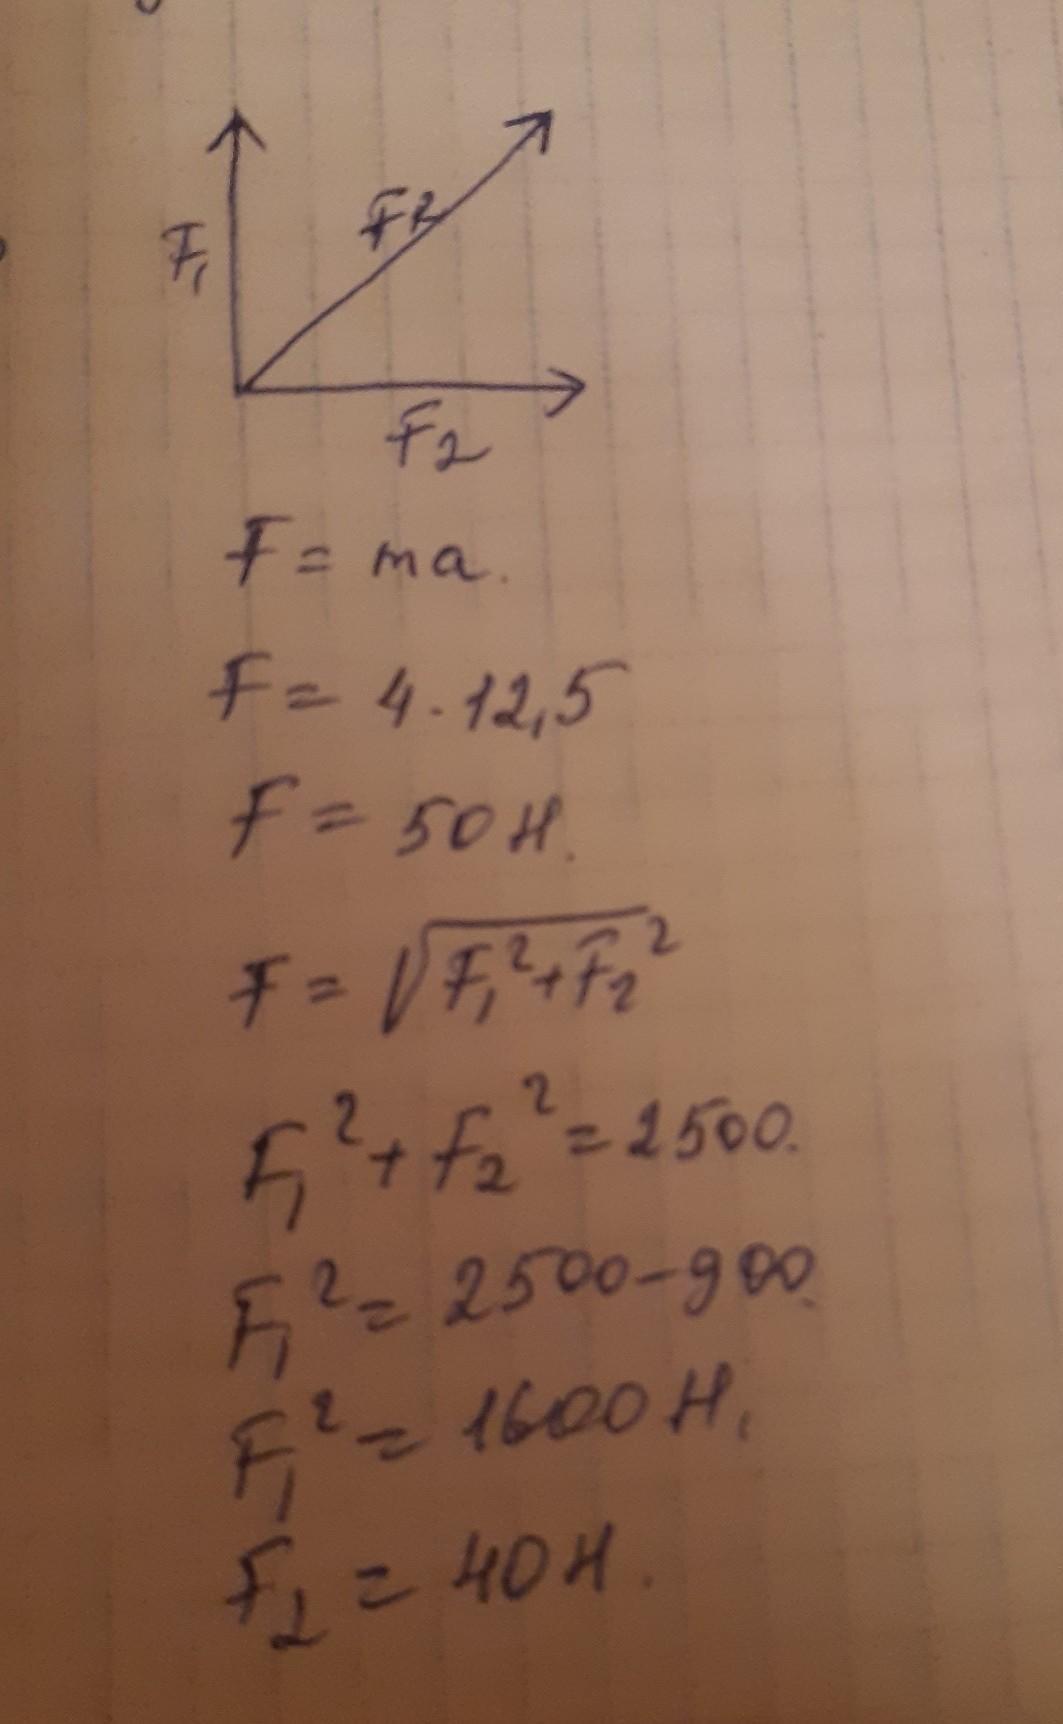 F₁
F₂
F₂
F = ma.
F = 4 · 12,5
F = 50 Н.
F = √F₁² + F₂²
F₁² + F₂² = 2500.
F₁² = 2500 - 900.
F₁² = 1600 Н.
F₂ = 40 Н.